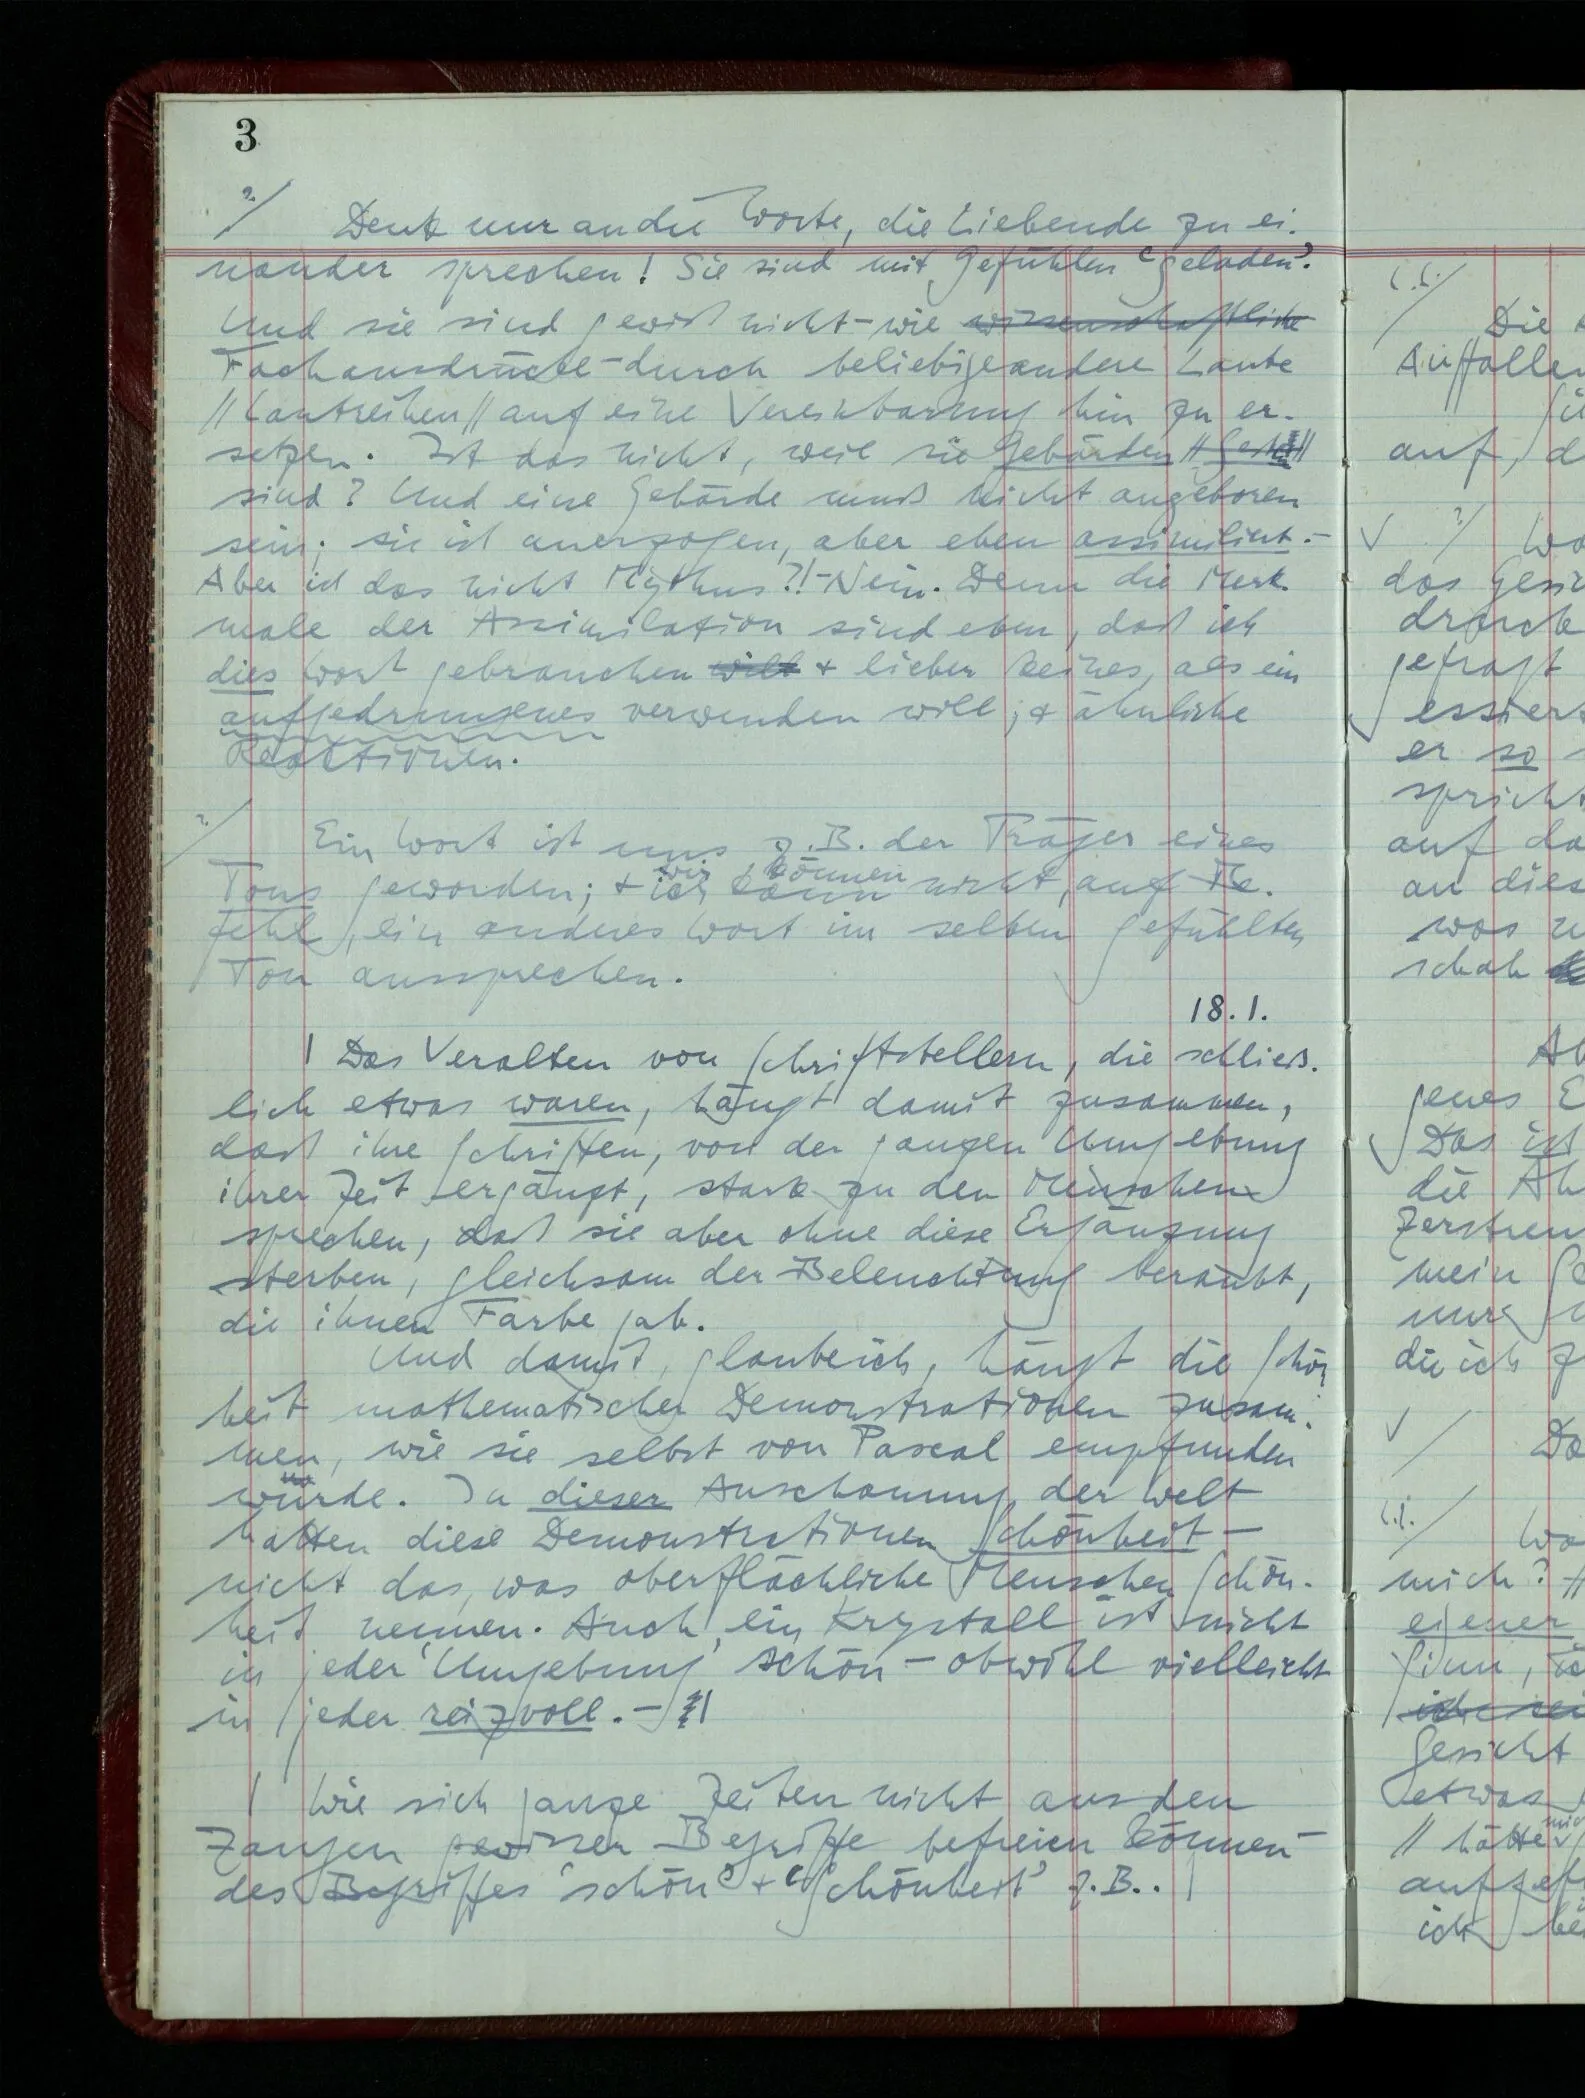 3
?/ Denk nur an die Worte, die Liebende zu ei-
nander sprechen! Sie sind mit Gefühlen ‘geladen’.
Und sie sind gewiß nicht – wie wissenschaftliche
Fachausdrücke – durch beliebige andere Laute
//Lautreihen// auf eine Vereinbarung hin zu er-
setzen. Ist das nicht, weil sie Gebärden //
sind? Und eine Gebärde muß nicht angeboren
sein; sie ist anerzogen, aber eben assimiliert. –
Aber ist das nicht Mythus?! – Nein. Denn die Merk-
male der Assimilation sind eben, daß ich
dies Wort gebrauchen will + lieber keines, als ein
aufgedrungenes verwenden will; + ähnliche
Reaktionen.
?/ Ein Wort ist uns z.B. der Träger eines
wir können
Tons geworden; + ich kann nicht, auf Be-
fehl, ein anderes Wort im selben gefühlten
Ton aussprechen.
18.1.
| Das Veralten von Schriftstellern, die schließ-
lich etwas waren, hängt damit zusammen,
daß ihre Schriften, von der ganzen Umgebung
ihrer Zeit ergänzt, stark zu den Menschen
sprechen, daß sie aber ohne diese Ergänzung
sterben, gleichsam der Beleuchtung beraubt,
die ihnen Farbe gab.
Und damit, glaube ich, hängt die Schön
heit mathematischer Demonstrationen zusam-
men, wie sie selbst von Pascal empfunden
wurde. In dieser Anschauung der Welt
hatten diese Demonstrationen Schönheit –
nicht das, was oberflächliche Menschen Schön-
heit nennen. Auch, ein Krystall ist nicht
in jeder ‘Umgebung’ schön – obwohl vielleicht
in jeder reizvoll. – |
| Wie sich ganze Zeiten nicht aus den
Zangen gewisser Begriffe befreien können –
des Begriffes ‘schön’ + ‘Schönheit’ z.B.. |
Die
auf, d
√ ?/
drucks
gefragt
er so
spricht
auf da
an dies
was
schah
jenes E
Das ist
die
mein
die ich
√ /
mich?
eigener
Gesicht
etwas
// hätte
ich